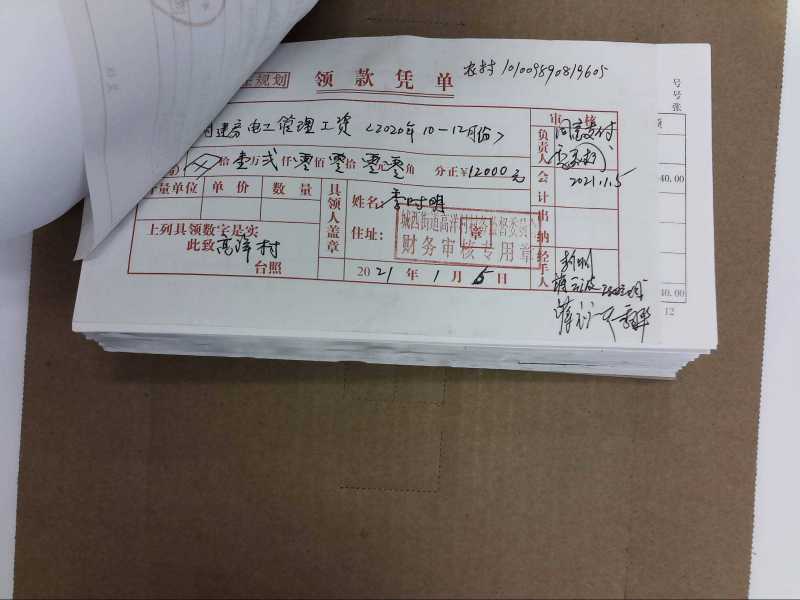 规划
领款凭单
农村 1010098908196​05
号
号
张
建房电工管理工资(2020年10-12月份)
审核
负责人
同意支付
拾壹万贰仟零佰零拾零元零角 分正¥12000元
会计
2021.1.5
40.00
量单位 单价 数量
具领人盖章
姓名:李时明
城西街道高洋村村务监督委员
财务审核专用章
住址:
章
出纳
上列具领数字是实
此致 高洋村
台照
2021年1月5日
经手人
40.00
12